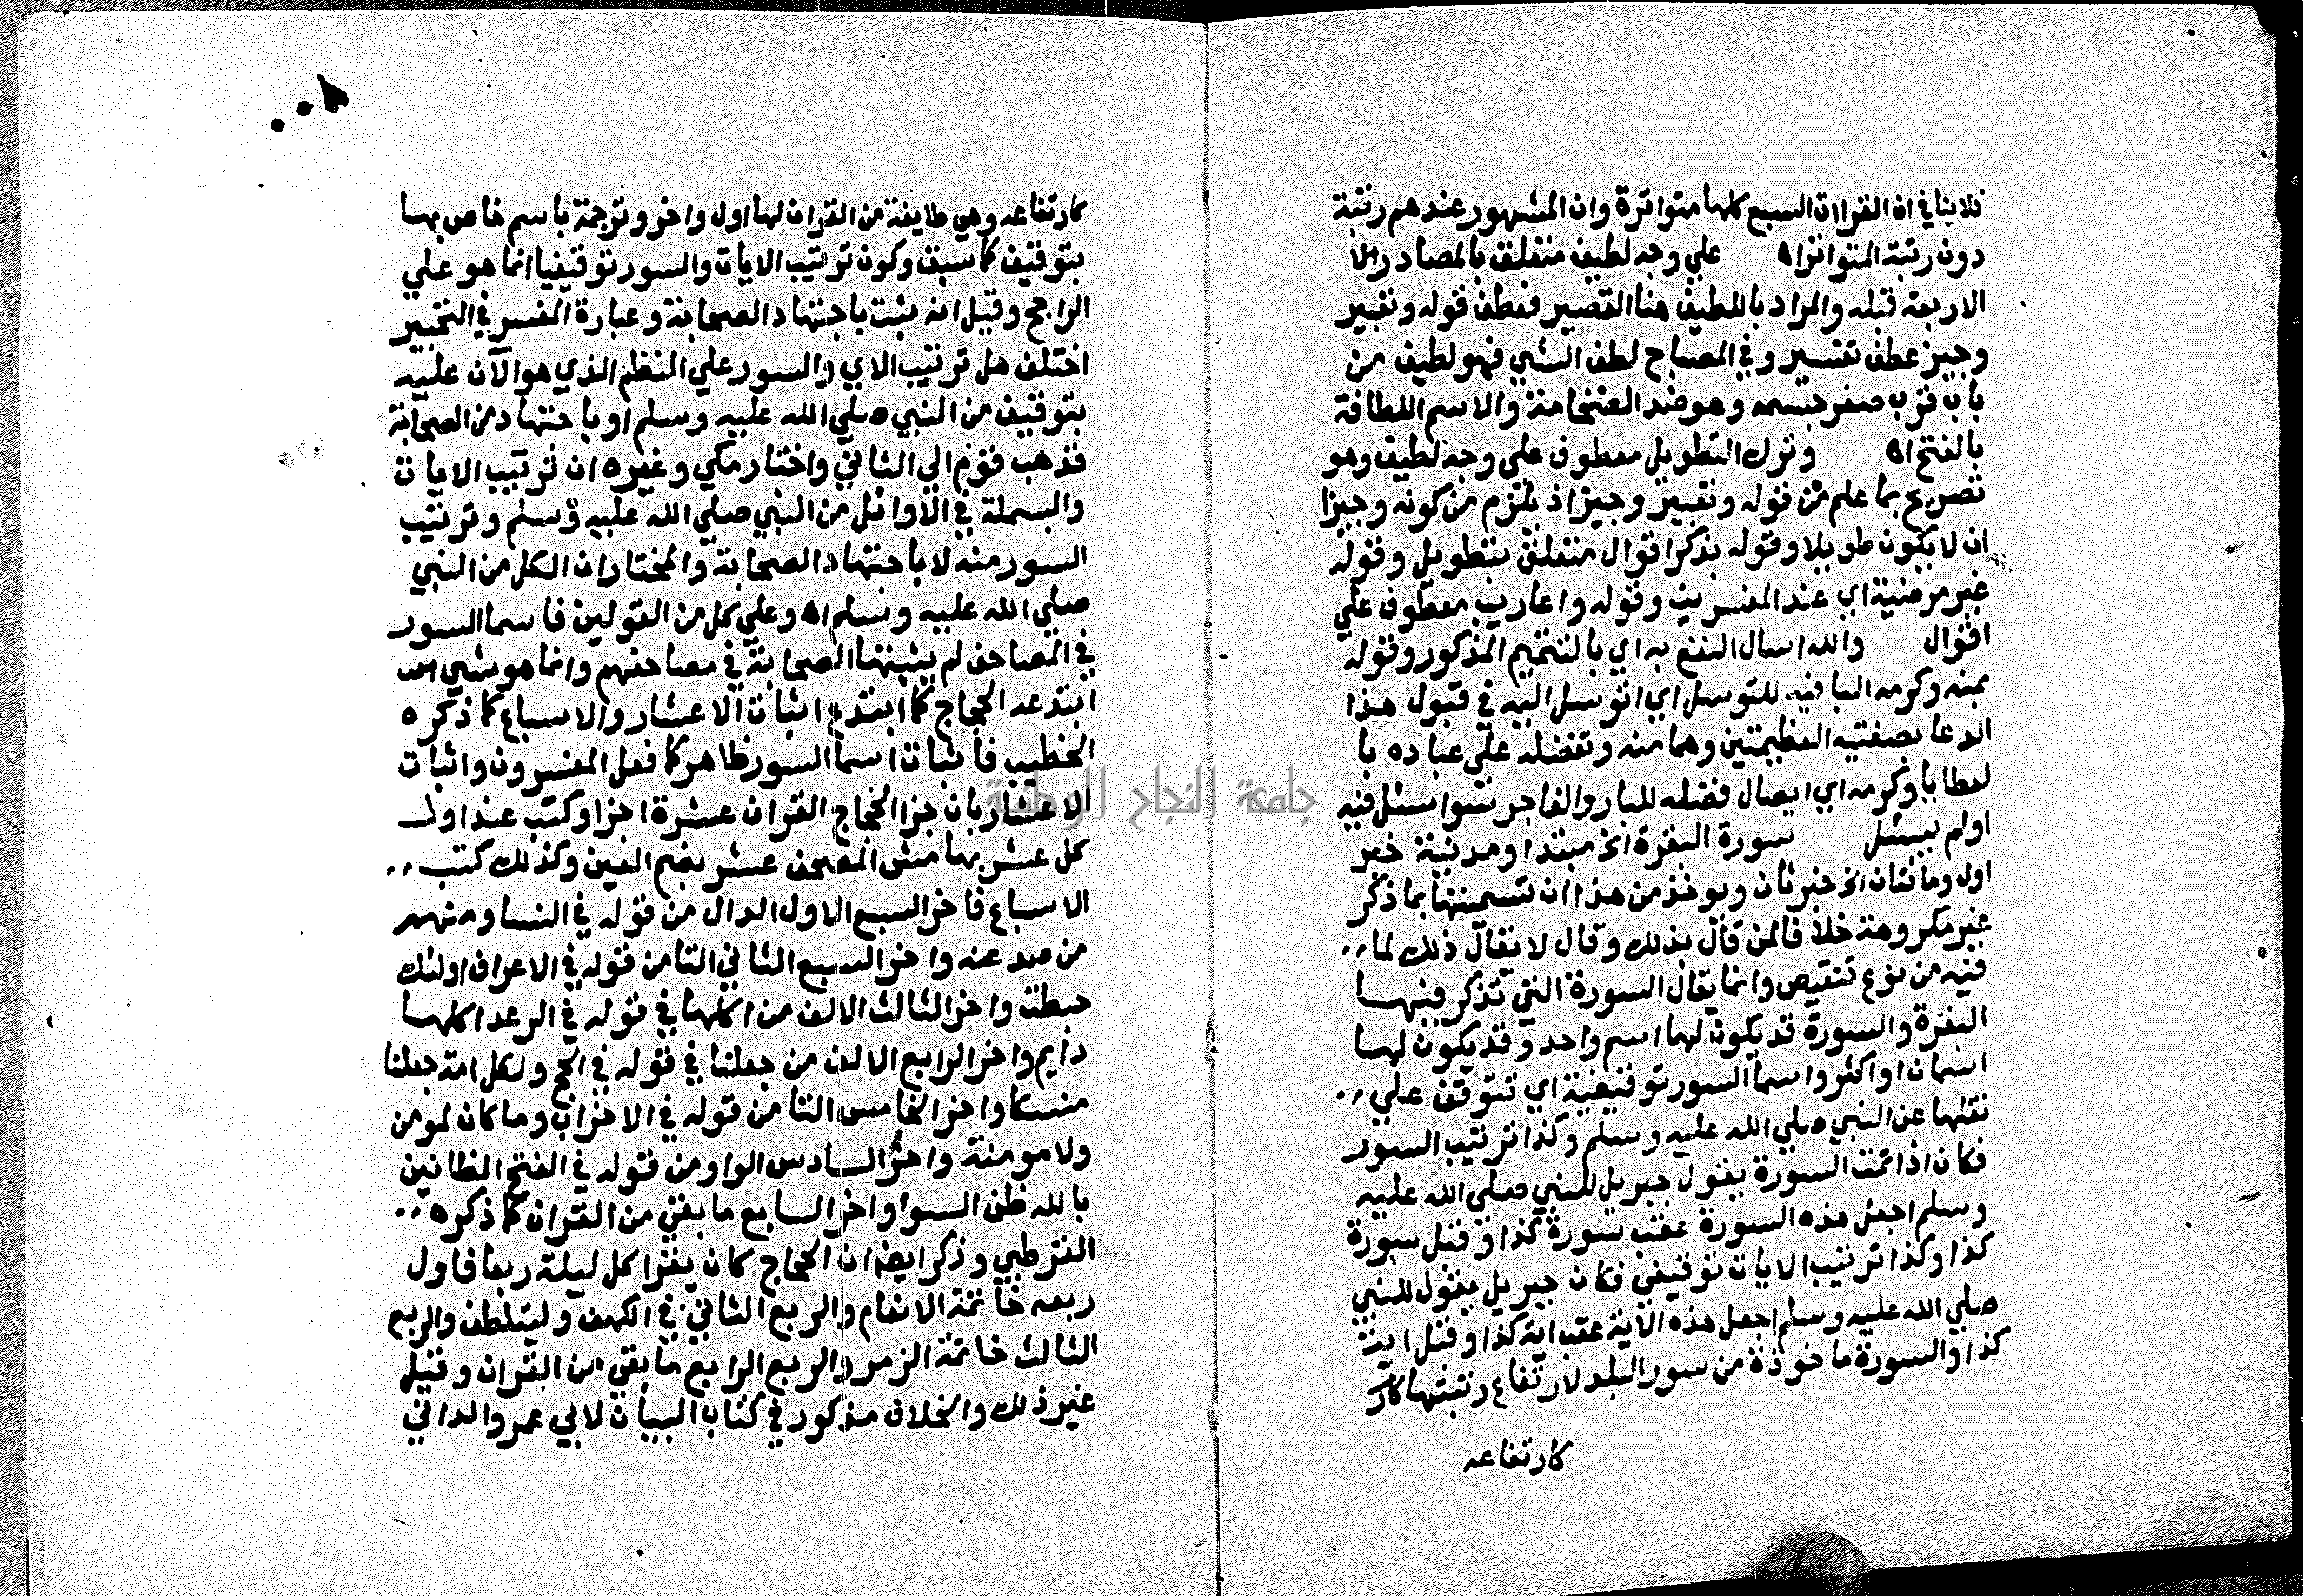 فلا ينافي ان القراات السبع كلها متواترة وان المشهور عندهم رتبة
دون رتبة المتواتر اه علي وجه لطيف متعلق بالمصادر الا
الاربعة قبله والمراد باللطيف هنا القصير فعطف قوله وتعبير
وجيز عطف تفسير وفي المصباح لطف الشي فهو لطيف من
باب قرب صغر جسمه وهو ضد الضخامة والاسم اللطافة
بالفتح اه وترك التطويل معطوف علي وجه لطيف وهو
تصريح بما علم من قوله وتعبير وجيز اذ يلزم من كونه وجيزا
ان لا يكون طويلا وقوله بذكر اقوال متعلق بتطويل وقوله
غير مرضية اي عند المفسرين وقوله واعاريب معطوف علي
اقوال والله اسال النفع به اي بالتتميم المذكور وقوله
بمنه وكرمه البا فيه للتوسل اي اتوسل اليه في قبول هذا
الدعا بصفتيه العظيمتين وهما منه وتفضله علي عباده با
لعطايا وكرمه اي ايصال فضله للبار والفاجر سوا سئل فيه
اولم يسئل سورة البقرة الخ مبتدا ومدنية خبر
اول ومائتان الخ خبر ثان ويوخذ من هذا ان تسميتها بما ذكر
غير مكروهة خلافا لمن قال بذلك وقال لا يقال ذلك لما
فيه من نوع تنقيص وانما يقال السورة التي تذكر فيها
البقرة والسورة قد يكون لها اسم واحد وقد يكون لها
اسمان او اكثر واسما السور توقيفية اي تتوقف علي
نقلها عن النبي صلي الله عليه وسلم وكذا ترتيب السور
فكان اذا تمت السورة يقول جبريل للنبي صلي الله عليه
وسلم اجعل هذه السورة عقب سورة كذا وقبل سورة
كذا وكذا ترتيب الايات توقيفي فكان جبريل يقول للنبي
صلي الله عليه وسلم اجعل هذه الاية عقب اية كذا وقبل اية
كذا والسورة ماخوذة من سور البلد لارتفاع رتبتها كار
كارتفاعه
كارتفاعه وهي طايفة من القران لها اول واخر وترجمة باسم خاص بها
بتوقيف كما سبق وكون ترتيب الايات والسور توقيفيا انما هو علي
الراجح وقيل انه ثبت باجتهاد الصحابة وعبارة المفسر في التحبير
اختلف هل ترتيب الاي والسور علي النظم الذي هو الآن عليه
بتوقيف من النبي صلي الله عليه وسلم او باجتهاد من الصحابة
فذهب قوم الي الثاني واختار مكي وغيره ان ترتيب الايات
والبسملة في الاوائل من النبي صلي الله عليه وسلم وترتيب
السور منه لا باجتهاد الصحابة والمختار ان الكل من النبي
صلي الله عليه وسلم اه وعلي كل من القولين فاسما السور
في المصاحف لم يثبتها الصحابة في مصاحفهم وانما هو شي
ابتدعه الحجاج كما ابتدع اثبات الاعشار والاسباع كما ذكره
الخطيب فاثبات اسما السور ظاهر كما فعل المفسرون واثبات
الاعشار بان جزا الحجاج القران عشرة اجزا وكتب عند اول
كل عشر بهامش المصحف عشر بضم العين وكذلك كتب
الاسباع فاخر السبع الاول الدال من قوله في النسا ومنهم
من صد عنه واخر السبع الثاني التا من قوله في الاعراف اولئك
حبطت واخر الثالث الالف من اكلها في قوله في الرعد اكلها
دايم واخر الرابع الالف من جعلنا في قوله في الحج ولكل امة جعلنا
منسكا واخر الخامس التا من قوله في الاحزاب وما كان لمومن
ولا مومنة واخر السادس الواو من قوله في الفتح الظانين
بالله ظن السوا واخر السابع ما بقي من القران كما ذكره
القرطبي وذكر ايضا ان الحجاج كان يقرا كل ليلة ربعا فاول
ربعه خاتمة الانعام والربع الثاني في الكهف وليتلطف والربع
الثالث خاتمة الزمر والربع الرابع ما بقي من القران وقيل
غير ذلك والخلاف مذكور في كتاب البيان لابي عمرو الداني
جامعة النجاح الوطنية